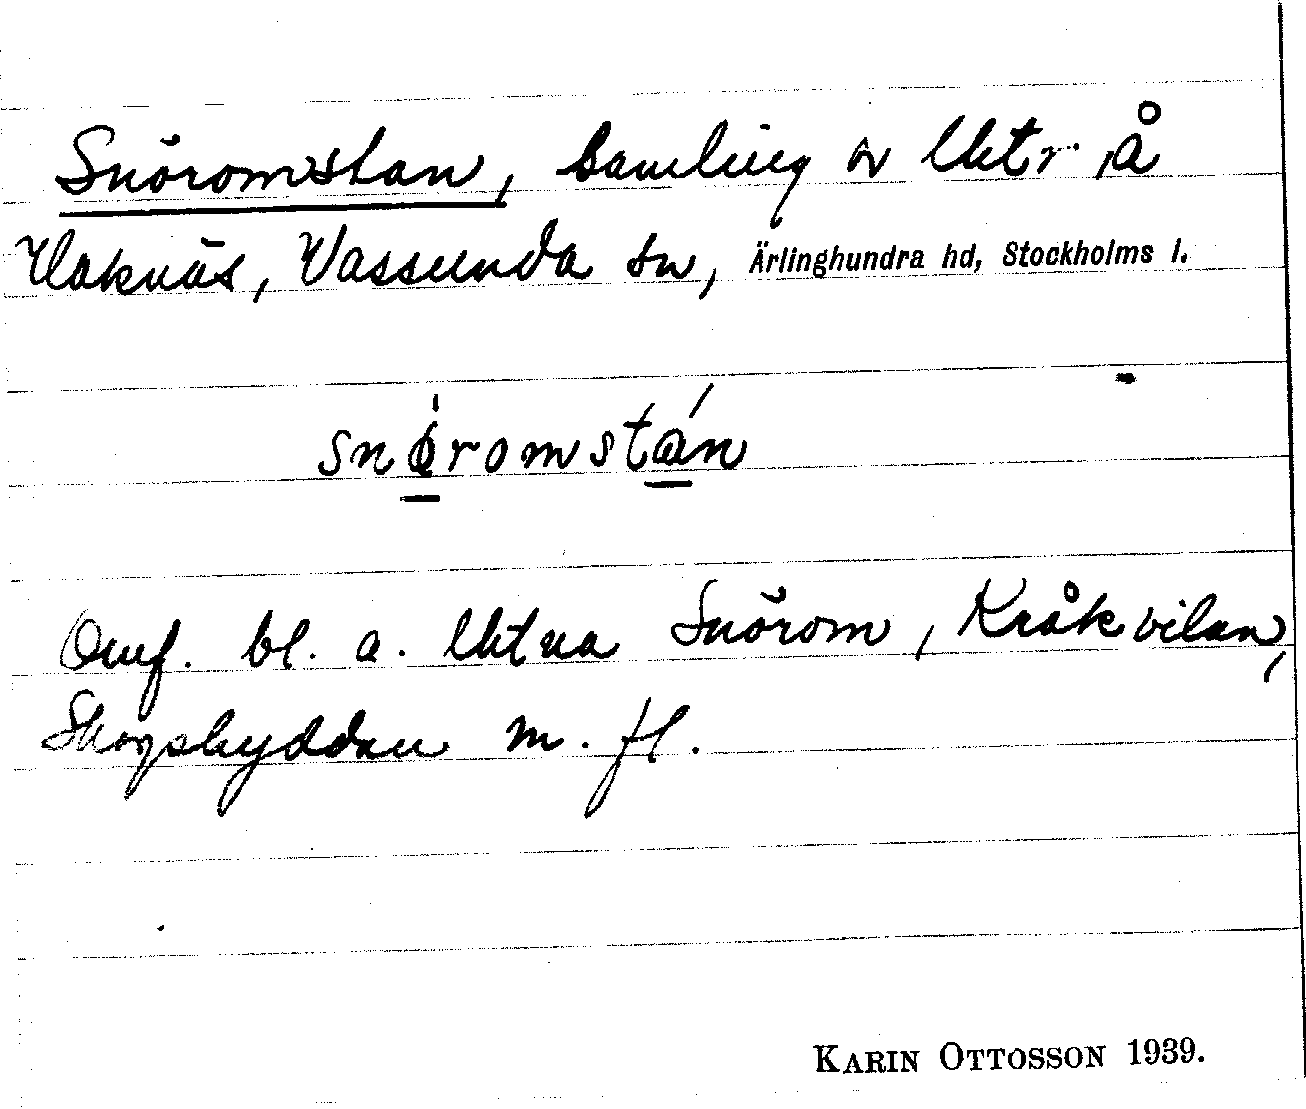 Snöromstan, samling av lht:r å
Vaknäs, Vassunda sn, Ärlinghundra hd, Stockholms l.
snǿromstán
Omf. bl. a. lht:na Snörom, Kråkvilan,
Skogshyddan m. fl.
KARIN OTTOSSON 1939.